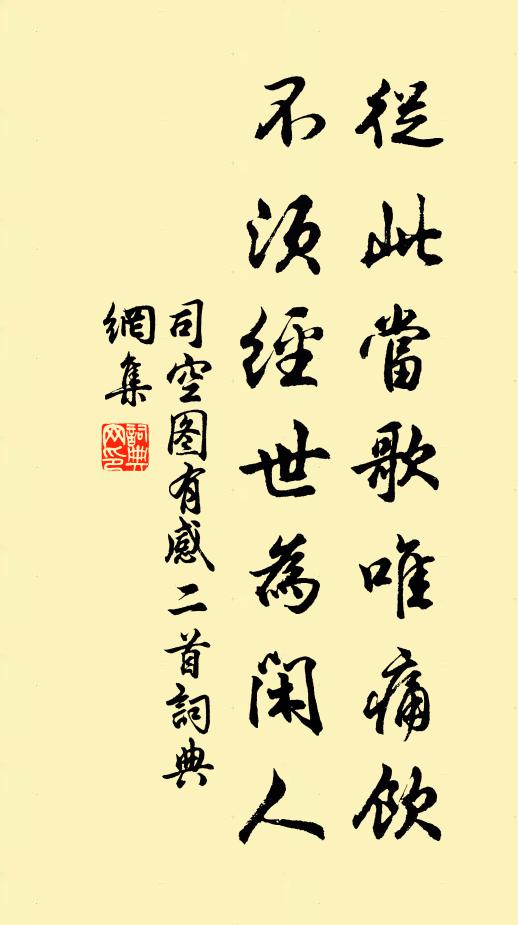 從此當歌唯痛飲
不須經世為閑人
司空图有感二首詞典
網集
詞典
网印